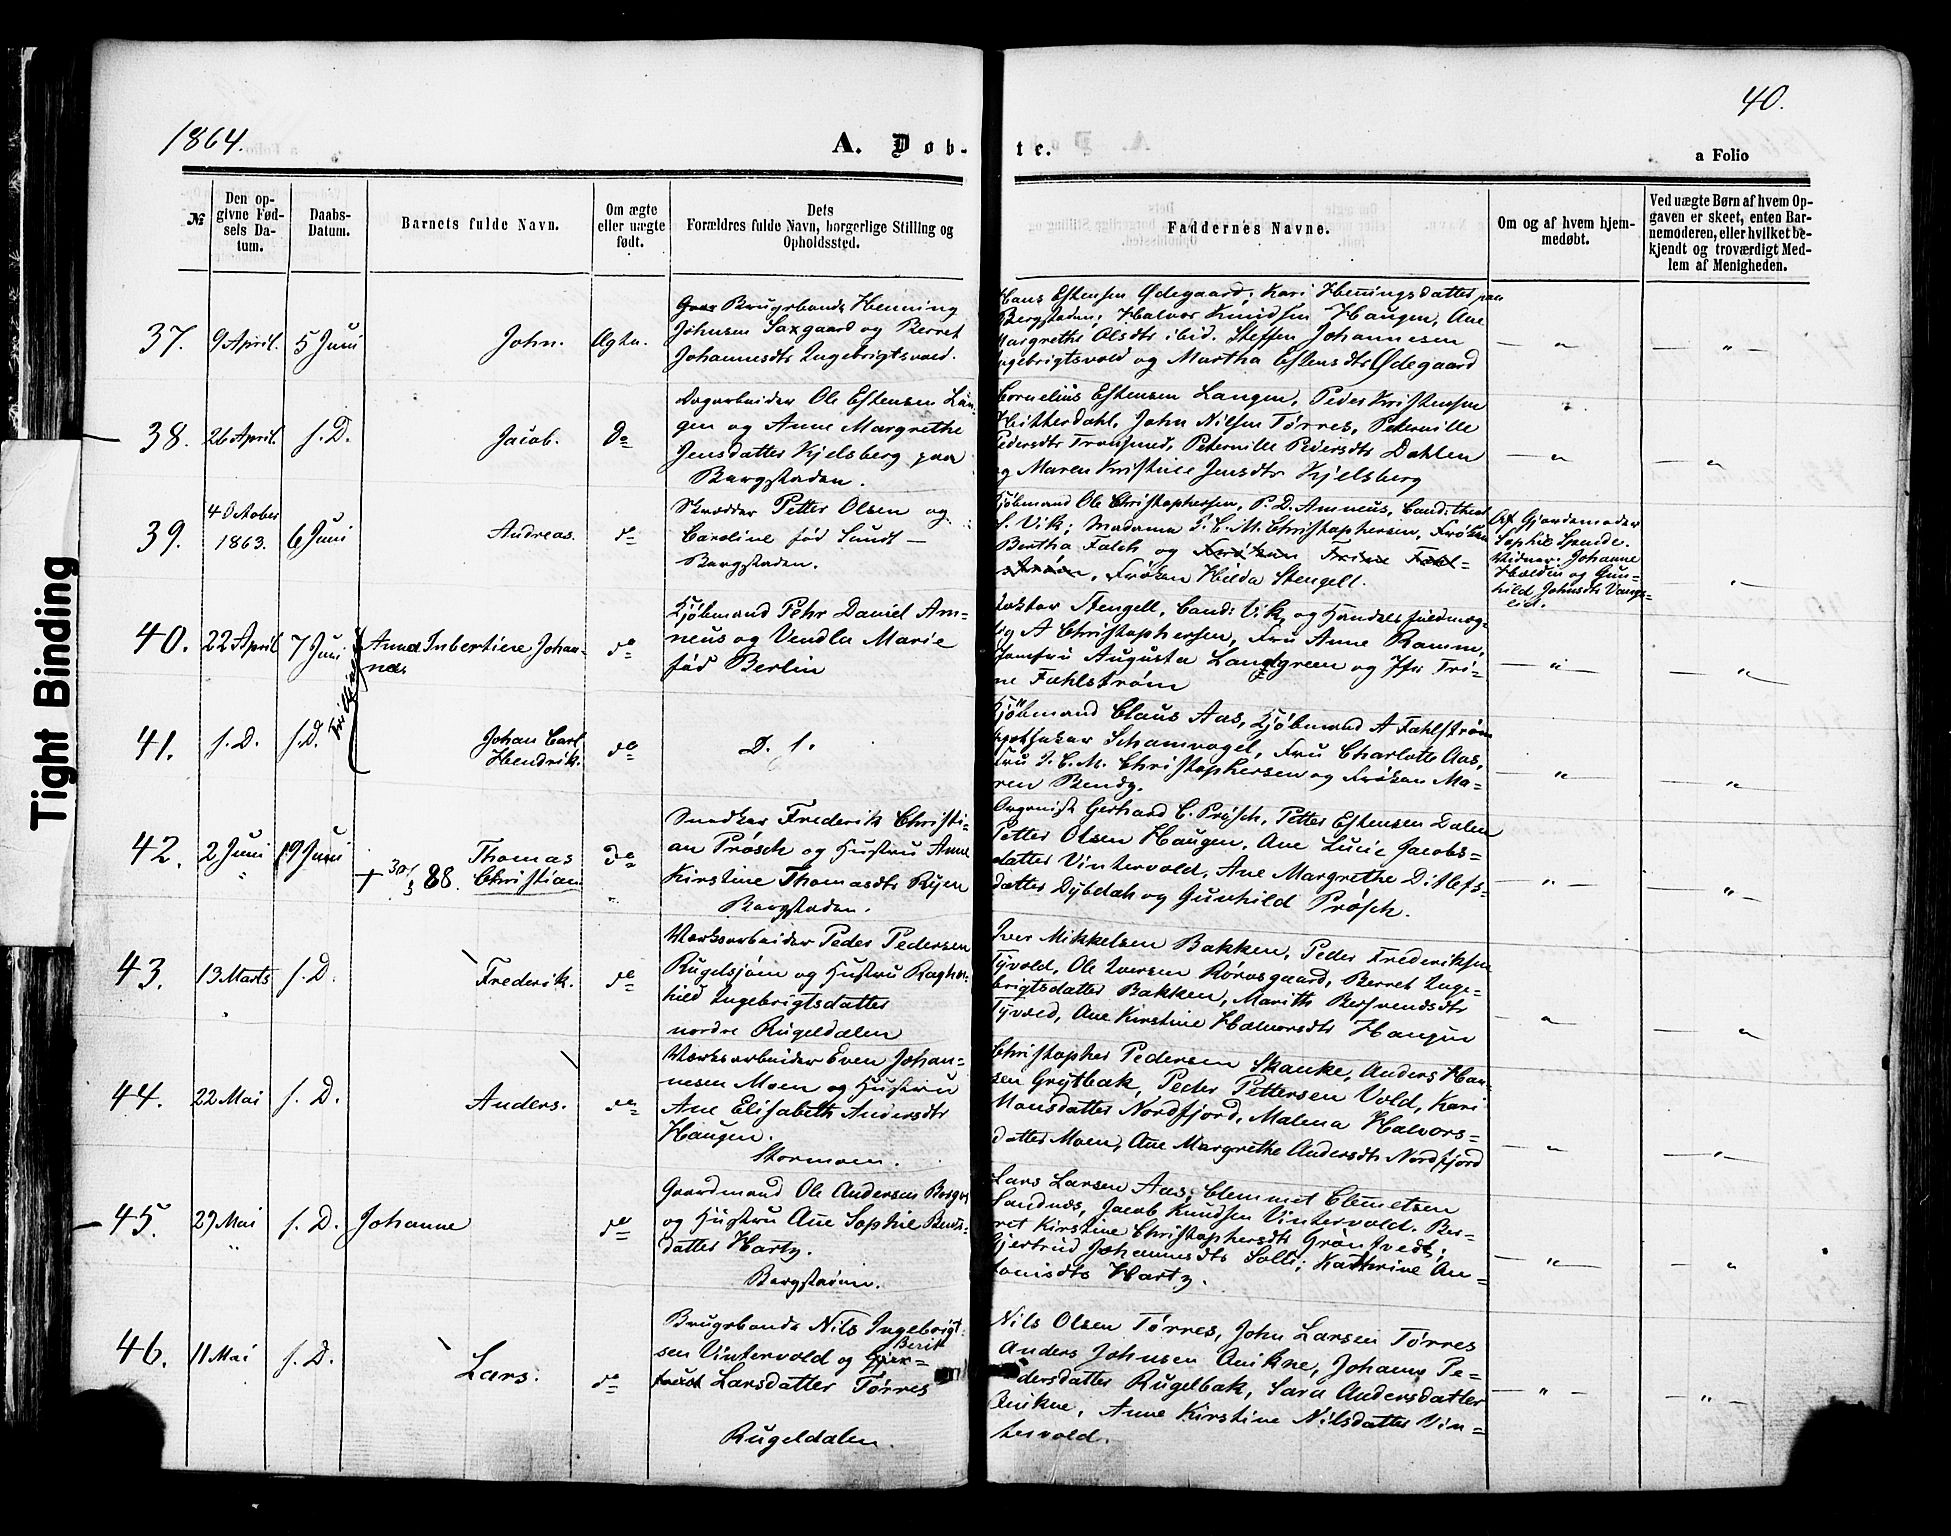 40.
1864.
A. Døb-te.
a Folio
№
Den op-
givne Fød-
sels Da-
tum.
Daabs-
Datum.
Barnets fulde Navn.
Om ægte
eller uægte
født.
Dets
Forældres fulde Navn, borgerlige Stilling og
Opholdssted.
Faddernes Navne.
Om og af hvem hjem-
medøbt.
Ved uægte Børn af hvem Op-
gaven er skeet, enten Bar-
nemoderen, eller hvilket be-
kjendt og troværdigt Med-
lem af Menigheden.
37. 9 April. 5 Juni John. Ægte.
Brugsbonde Henning
Johnsen Saxgaard og Berret
Johannesdtr Ingebrigtsvold.
Hans Estensen Ødegaard; Kari Henningsdatter paa
Bergstaden; Halvor Knudsen Haugen, Ane
Margrethe Olsdtr ibid. Steffen Johannesen
Ingebrigtsvold og Martha Estensdtr Ødegaard
38. 26 April. s. D. Jacob. Do
Dagarbeider Ole Estensen Lan-
gen og Anne Margrethe
Jensdatter Kjelsberg paa
Bergstaden.
Cornelius Estensen Langen, Peder Kristensen
Hitterdahl, John Nilsen Tørres, Peternille
Pedersdtr Tronsmed, Peternille Pedersdtr Dahlen
og Maren Kristine Jensdtr Kjelsberg
39. 4 October
1863. 6 Juni Andreas. do
Skrædder Petter Olsen og
Caroline fød Lund —
Bergstaden.
Kjøbmand Ole Christophersen, P. D. Amneus, Cand: theol
S. Vik; Madame J. C. M. Christophersen, Frøken
Bertha Falck og Frøken Trine Fahl-
strøm, Frøken Hilda Stengell.
Af Gjordemoder
Sophie Sjende.
Vidner: Johanne
Holden og Gun-
hild Johnsdtr Vangs-
lid.
40. 22 April 7 Juni Anna Inbertine Johan-
na. do
Kjøbmand Pehr Daniel Am-
neus og Vendla Marie
fød Berlin
Doktor Stengell, Cand: Vik, og Handelsfuldmæg-
tig A Christophersen, Fru Anne Ramm,
Jomfru Augusta Landgreen og Jfr Tri-
ne Fahlstrøm
41. s. D. s. D. Johan Carl
Hendrik. do
D. s.
Kjøbmand Claus Aas, Kjøbmand A Fahlstrøm
Apotheker Schamvogel, Fru Charlotte Aas,
Fru J. C. M. Christophersen og Frøken Ma-
ren Bendz.
42. 2 Juni 19 Juni + 30/3 88. Thomas
Christian do
Snedker Frederik Christi-
an Prøsch og Hustru Anne
Kirstine Thomasdtr Ryen
Bergstaden.
Organist Gerhard C. Prøsch, Petter Estensen Dalen
Petter Olsen Haugen, Ane Lucie Jacobs-
datter Vintervold, Ane Margrethe Ditlefs-
datter Dybdah og Gunhild Prøsch.
43. 13 Marts s. D. Frederik. do
Værksarbeider Peder Pedersen
Rugelsjøen og Hustru Ragn-
hild Ingebrigtsdatter
nordre Rugeldalen
Iver Mikkelsen Bakken, Peder Frederiksen
Tyvold, Ole Iversen Rørosgaard, Berret Inge-
brigtsdatter Bakken, Marith Bersvendsdtr
Tyvold, Ane Kirstine Halvorsdtr Haugen
44. 22 Mai s. D. Anders. do
Værksarbeider Even Johan-
nesen Moen og Hustru
Ane Elisabeth Andersdtr
Haugen.
Stormoen.
Christopher Pedersen Skanke, Anders Han-
sen Grytbak, Peder Pettersen Vold, Kari
Monsdatter Nordfjord, Malena Halvors-
datter Moen, Ane Margrethe Andersdtr Nordfjord
45. 29 Mai s. D. Johanne do
Gaardmand Ole Andersen Berg
og Hustru Ane Sophie Bends-
datter Hartz.
Bergstaden.
Lars Larsen Aas, Clemmet Clemetsen
Sandnæs, Jacob Knudsen Vintervold. Ber-
ret Kirstine Christophersdtr Grøntvedt;
Gjertrud Johannesdtr Solli; Kathrine An-
tonisdtr Hartz.
46. 11 Mai s. D. Lars. do
Brugsbonde Nils Ingebrigt-
sen Vintervold og Berit
Larsdatter Tørres
Rugeldalen.
Nils Olsen Tørres, John Larsen Tørres
Anders Johnsen Qvikne, Johanne Pe-
dersdatter Rugelbak, Sara Andersdatter
Qvikne, Anne Kirstine Nilsdatter Vin-
tervold.
Tight Binding